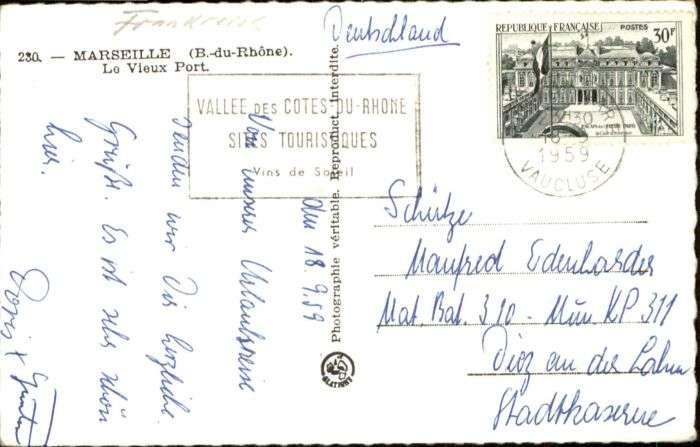 Frankreich
Deutschland
230. — MARSEILLE (B.-du-Rhône).
Le Vieux Port.
VALLEE DES COTES-DU-RHONE
SITES TOURISTIQUES
Vins de Soleil
RÉPUBLIQUE FRANÇAISE POSTES
30F
18-9
1959
VAUCLUSE
Photographie véritable. Reproduct. Interdite.
den 18.9.59
Von unserer Urlaubsreise
senden wir Dir herzliche
Grüße. Es ist sehr schön
hier.
Doris + Günter
Schütze
Manfred Edenharder
Mat. Bat. 310 - Mun. KP 311
Diez an der Lahn
Stadtkaserne